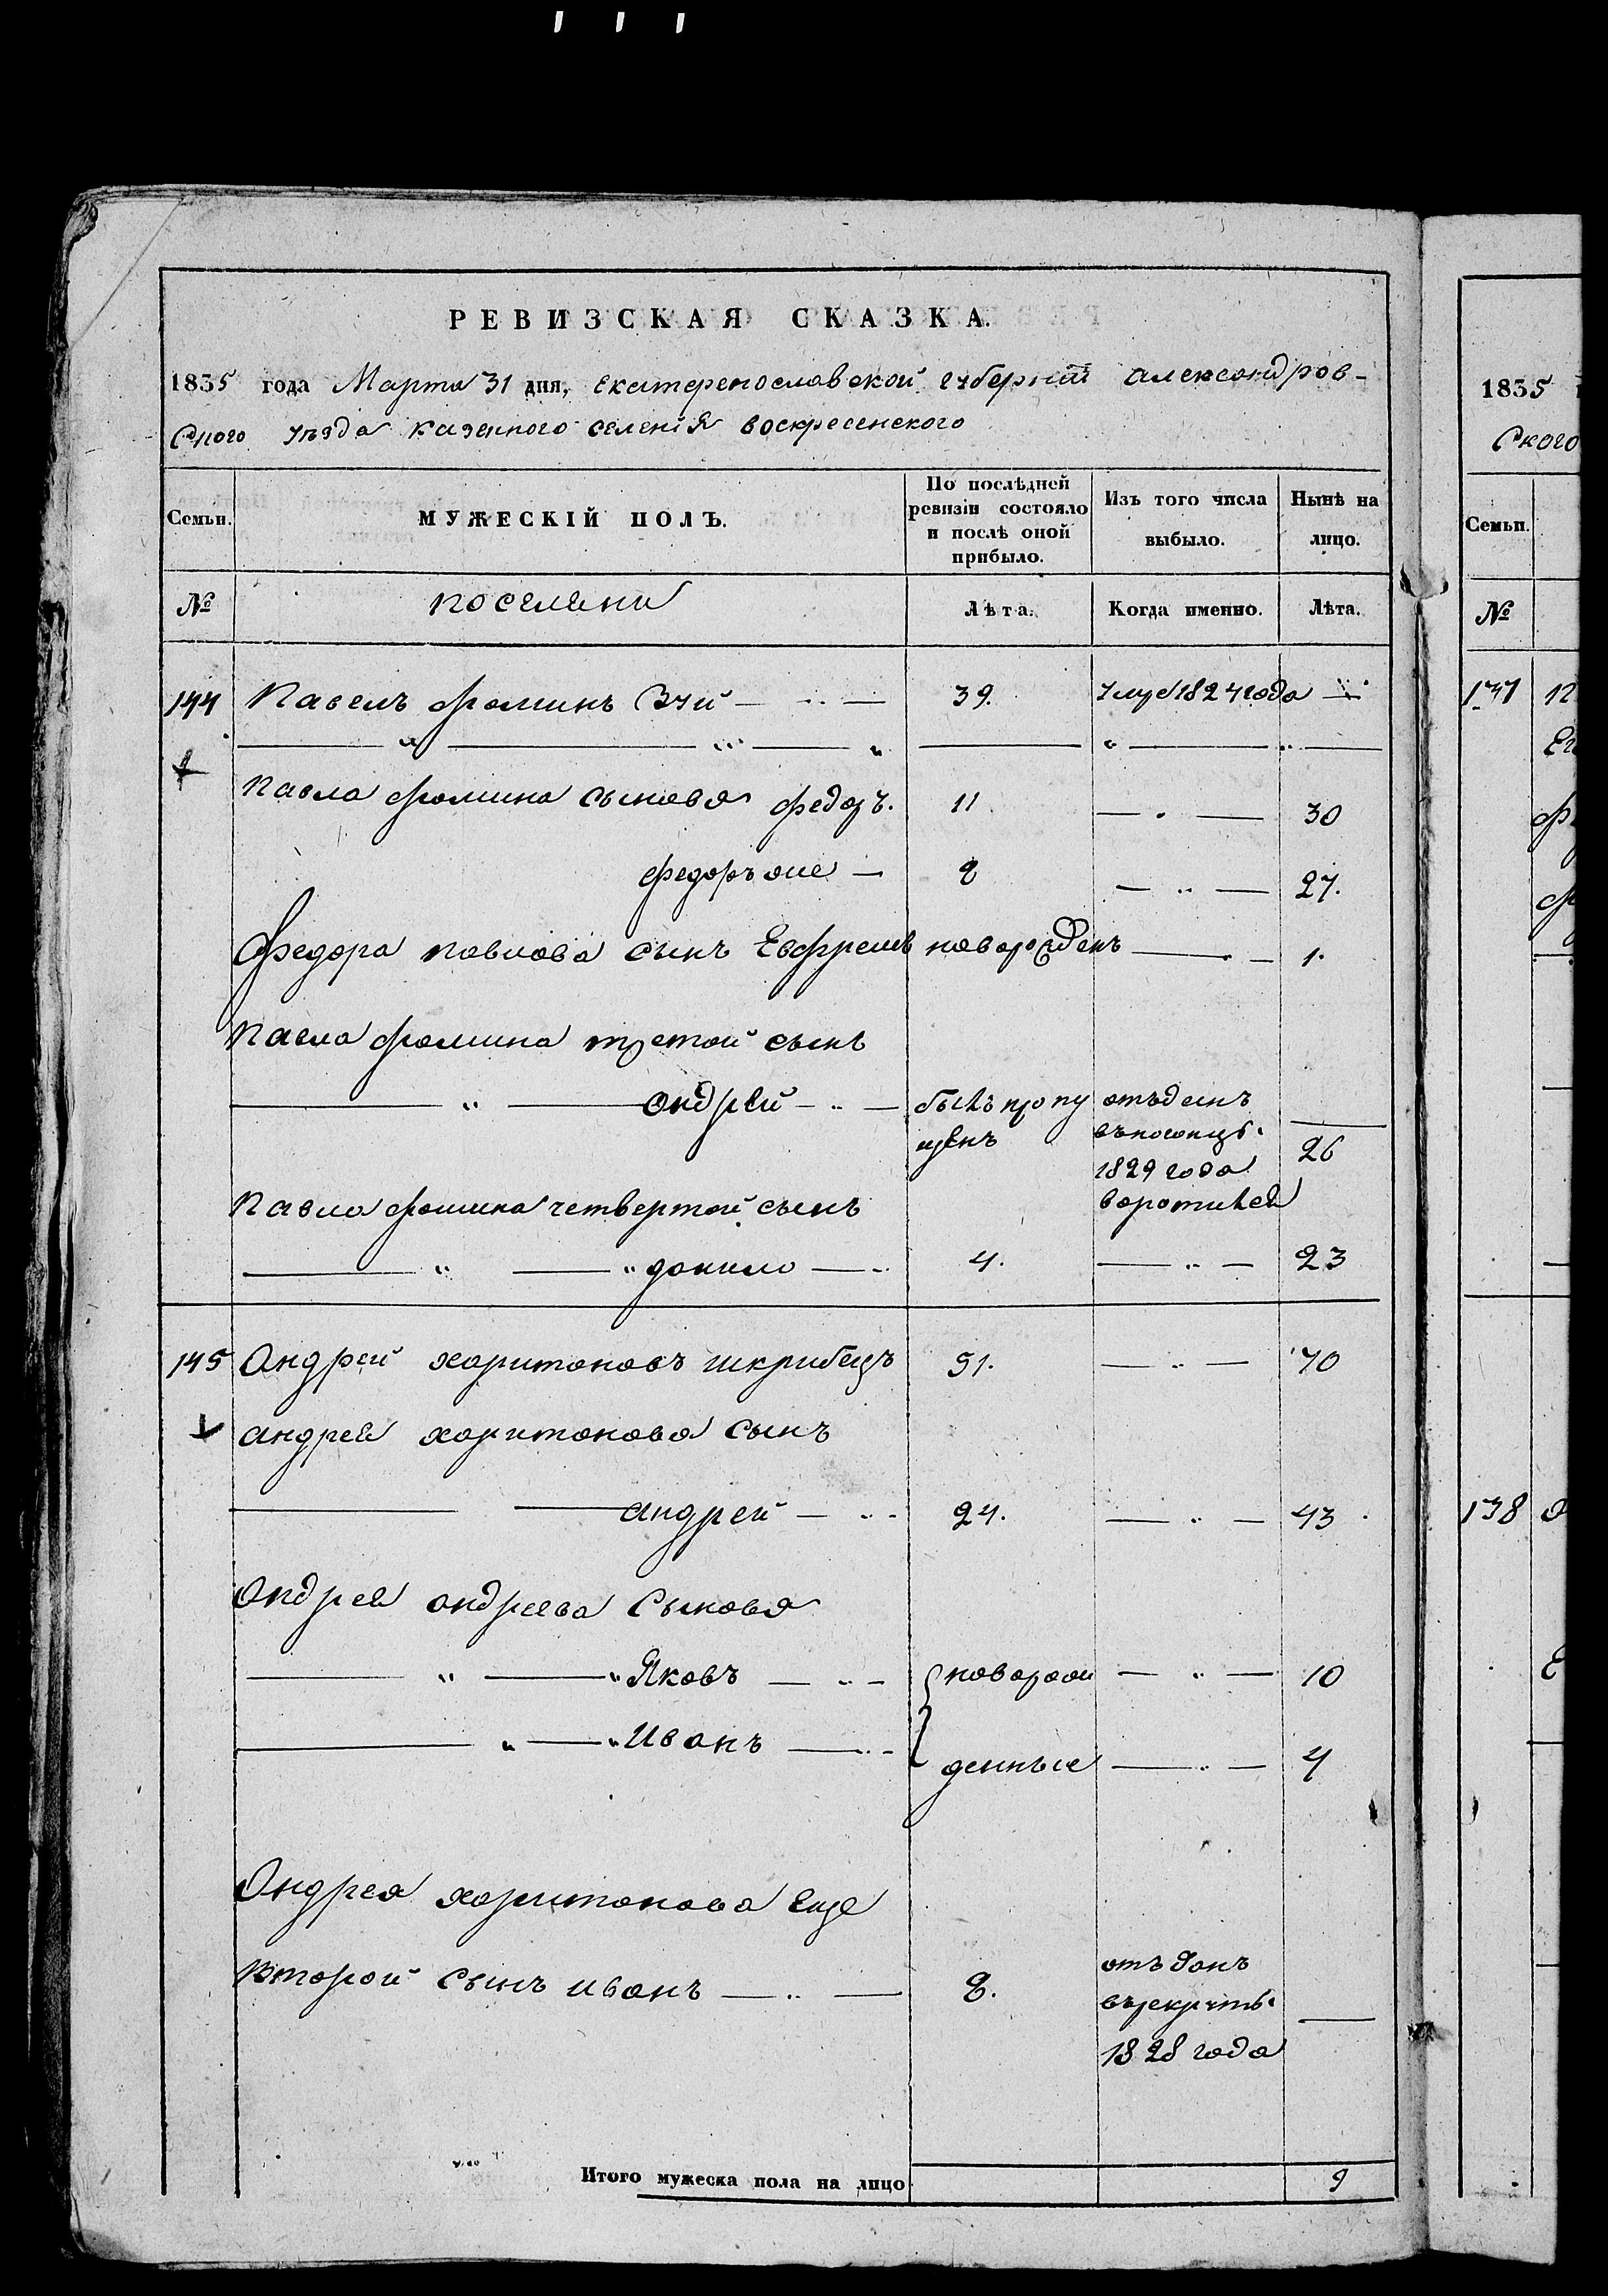 РЕВИЗСКАЯ СКАЗКА.
1835 года Марта 31 дня, екатеренославской губерниі александров-
ского уезда казенного селеніЯ воскресенского
Семьи. МУЖЕСКІЙ ПОЛЪ. По послѣдней ревизіи состояло и послѣ оной прибыло. Изъ того числа выбыло. Нынѣ на лицо.
№ поселяни Лѣта. Когда именно. Лѣта.
144 Павелъ фоминъ 39. умре 1824 года
Павла фомина сыновья федоръ. 11. 30
федоръ же 8 27.
Федора павлова сынъ Евфремъ новорожденъ 1.
Павла фомина третой сынъ
андрей былъ пропущенъ отъдамъ 1829 года воротился 26
Павла фомина четвертой сынъ
данило 4. 23
145 Андрей харитоновъ шкрибецъ 51. 70
андрея харитонова сынъ
андрей 24. 43
Андрея андреева сыновья
Яковъ новорож 10
Иванъ денные 4
Андрея харитонова еще
второй сынъ иванъ 8. отъданъ върекруты 1828 года
Итого мужеска пола на лицо 9
1835
ского
Семьи.
№
137
138